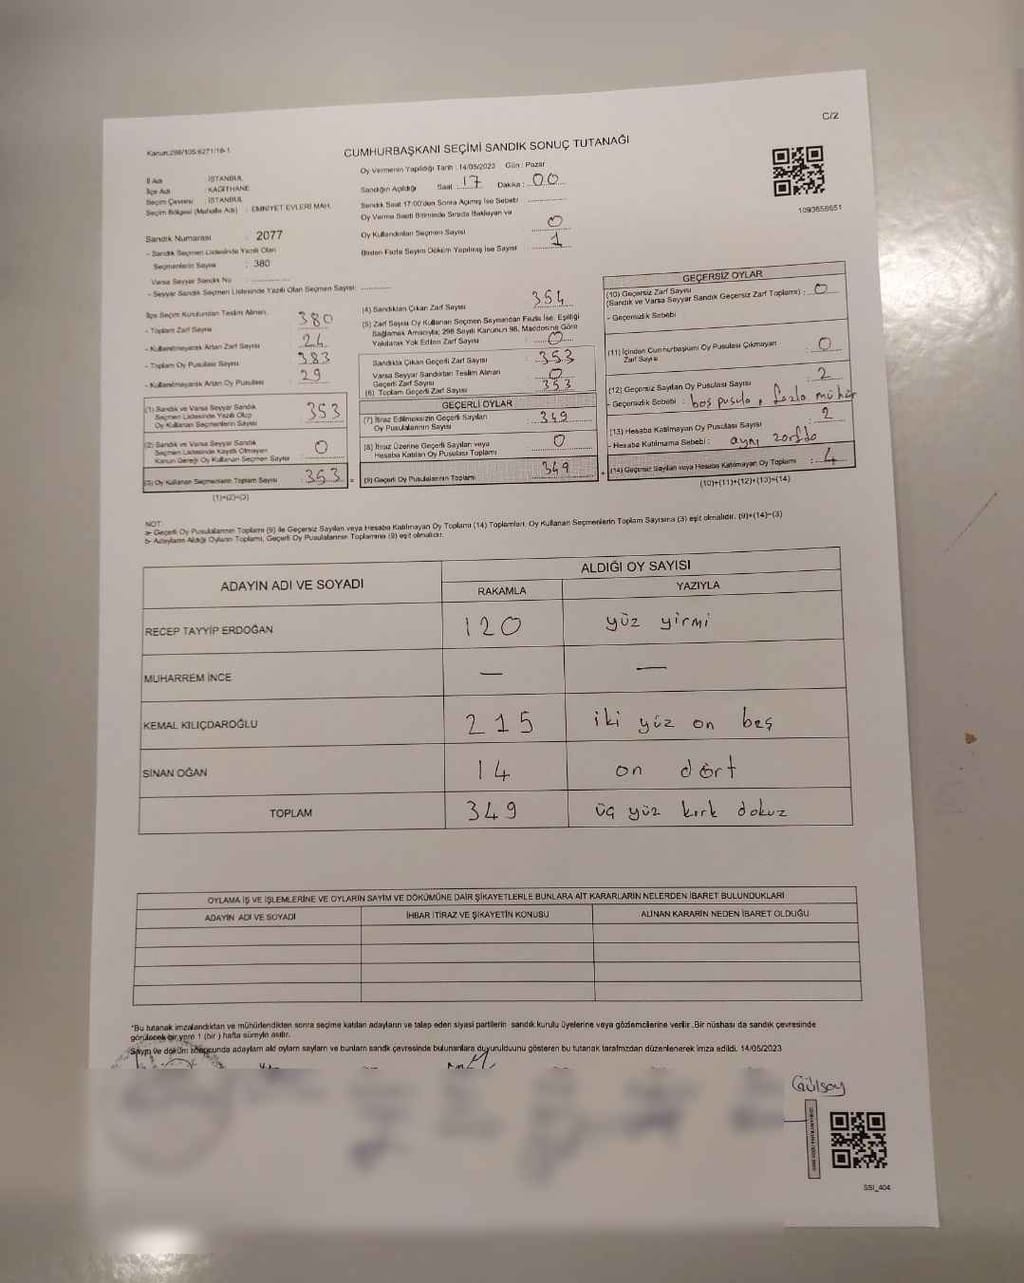 C/2
Kanun:298/105 6271/18-1
CUMHURBAŞKANI SEÇİMİ SANDIK SONUÇ TUTANAĞI
İl Adı : İSTANBUL
İlçe Adı : KAĞITHANE
Seçim Çevresi : İSTANBUL
Seçim Bölgesi (Mahalle Adı) : EMNİYET EVLERİ MAH.
Sandık Numarası : 2077
- Sandık Seçmen Listesinde Yazılı Olan
Seçmenlerin Sayısı : 380
Varsa Seyyar Sandık No :
- Seyyar Sandık Seçmen Listesinde Yazılı Olan Seçmen Sayısı:
Oy Vermenin Yapıldığı Tarih : 14/05/2023 Gün : Pazar
Sandığın Açıldığı Saat : 17 Dakika : 00
Sandık Saat 17:00'dan Sonra Açılmış İse Sebebi
Oy Verme Saati Bitiminde Sırada Bekleyen ve
Oy Kullandırılan Seçmen Sayısı 0
Birden Fazla Sayım Döküm Yapılmış İse Sayısı 1
1093658651
İlçe Seçim Kurulundan Teslim Alınan
- Toplam Zarf Sayısı 380
- Kullanılmayarak Artan Zarf Sayısı 26
- Toplam Oy Pusulası Sayısı 383
- Kullanılmayarak Artan Oy Pusulası 29
(1) Sandık ve Varsa Seyyar Sandık
Seçmen Listesinde Yazılı Olup
Oy Kullanan Seçmenlerin Sayısı 353
(2) Sandık ve Varsa Seyyar Sandık
Seçmen Listesinde Kayıtlı Olmayan
Kanun Gereği Oy Kullanan Seçmen Sayısı 0
(3) Oy Kullanan Seçmenlerin Toplam Sayısı 353
(1)+(2)=(3)
(4) Sandıktan Çıkan Zarf Sayısı 354
(5) Zarf Sayısı Oy Kullanan Seçmen Sayısından Fazla İse, Eşitliği
Sağlamak Amacıyla; 298 Sayılı Kanunun 98. Maddesine Göre
Yakılarak Yok Edilen Zarf Sayısı 0
Sandıkta Çıkan Geçerli Zarf Sayısı 353
Varsa Seyyar Sandıktan Teslim Alınan
Geçerli Zarf Sayısı 0
(6) Toplam Geçerli Zarf Sayısı 353
GEÇERLİ OYLAR
(7) İtiraz Edilmeksizin Geçerli Sayılan
Oy Pusulasının Sayısı 349
(8) İtiraz Üzerine Geçerli Sayılan veya
Hesaba Katılan Oy Pusulası Toplamı 0
(9) Geçerli Oy Pusulalarının Toplamı 349
GEÇERSİZ OYLAR
(10) Geçersiz Zarf Sayısı
(Sandık ve Varsa Seyyar Sandık Geçersiz Zarf Toplamı) : 0
- Geçersizlik Sebebi
(11) İçinden Cumhurbaşkanı Oy Pusulası Çıkmayan
Zarf Sayısı 0
(12) Geçersiz Sayılan Oy Pusulası Sayısı 2
- Geçersizlik Sebebi : boş pusula, fazla mühür
(13) Hesaba Katılmayan Oy Pusulası Sayısı 2
- Hesaba Katılmama Sebebi : aynı zarfda
(14) Geçersiz Sayılan veya Hesaba Katılmayan Oy Toplamı : 4
(10)+(11)+(12)+(13)=(14)
NOT:
a- Geçerli Oy Pusulalarının Toplamı (9) ile Geçersiz Sayılan veya Hesaba Katılmayan Oy Toplamı (14) Toplamları, Oy Kullanan Seçmenlerin Toplam Sayısına (3) eşit olmalıdır. (9)+(14)=(3)
b- Adayların Aldığı Oyların Toplamı, Geçerli Oy Pusulalarının Toplamına (9) eşit olmalıdır.
ADAYIN ADI VE SOYADI
ALDIĞI OY SAYISI
RAKAMLA YAZIYLA
RECEP TAYYİP ERDOĞAN 120 yüz yirmi
MUHARREM İNCE — —
KEMAL KILIÇDAROĞLU 215 iki yüz on beş
SİNAN OĞAN 14 on dört
TOPLAM 349 üç yüz kırk dokuz
OYLAMA İŞ VE İŞLEMLERİNE VE OYLARIN SAYIM VE DÖKÜMÜNE DAİR ŞİKAYETLERLE BUNLARA AİT KARARLARIN NELERDEN İBARET BULUNDUKLARI
ADAYIN ADI VE SOYADI İHBAR İTİRAZ VE ŞİKAYETİN KONUSU ALINAN KARARIN NEDEN İBARET OLDUĞU
*Bu tutanak imzalandıktan ve mühürlendikten sonra seçime katılan adayların ve talep eden siyasi partilerin sandık kurulu üyelerine veya gözlemcilerine verilir. Bir nüshası da sandık çevresinde
görülecek bir yere 1 (bir) hafta süreyle asılır.
Sayım ve döküm sonucunda adayların aldığı oyların sayıları ve bunların sandık çevresinde bulunanlara duyurulduğunu gösteren bu tutanak tarafımızdan düzenlenerek imza edildi. 14/05/2023
Gülsoy
SSI_404